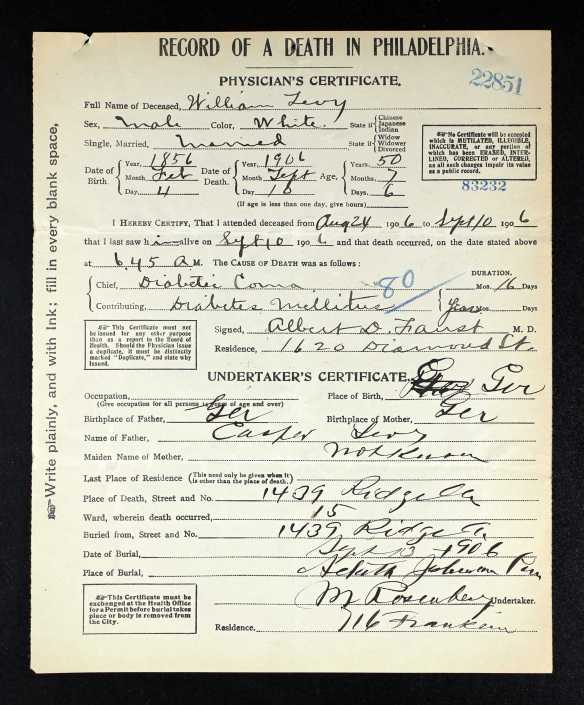 RECORD OF A DEATH IN PHILADELPHIA.
PHYSICIAN'S CERTIFICATE.
22851
Full Name of Deceased, William Levy
Sex, Male Color, White. State if Chinese Japanese Indian
Single, Married, Married State if Widow Widower Divorced
No Certificate will be accepted which is MUTILATED, ILLEGIBLE, INACCURATE, or any portion of which has been ERASED, INTERLINED, CORRECTED or ALTERED, as all such changes impair its value as a public record.
83232
Date of Birth. Year, 1856 Month Feb Day 4
Date of Death. Year, 1906 Month Sept Day 10
Age, Years, 50 Months, 7 Days, 6
(If age is less than one day, give hours)
I HEREBY CERTIFY, That I attended deceased from Aug 24 1906 to Sept 10 1906
that I last saw him alive on Sept 10 1906 and that death occurred, on the date stated above
at 6.45 A M. THE CAUSE OF DEATH was as follows:
DURATION.
Chief, Diabetic Coma 80 Mos. 16 Days
Contributing, Diabetes Mellitus Years Mos. Days
This Certificate must not be issued for any other purpose than as a report to the Board of Health. Should the Physician issue a duplicate, it must be distinctly marked "Duplicate," and state why issued.
Signed, Albert D. Faust M. D.
Residence, 1620 Diamond St.
UNDERTAKER'S CERTIFICATE.
Occupation, Place of Birth, Ger
(Give occupation for all persons years of age and over)
Birthplace of Father, Ger Birthplace of Mother, Ger
Name of Father, Casper Levy
Maiden Name of Mother, Not Known
Last Place of Residence (This need only be given when it is other than the place of death.)
Place of Death, Street and No. 1439 Ridge Av
Ward, wherein death occurred, 15
Buried from, Street and No. 1439 Ridge Av.
Date of Burial, Sept 13 1906
Place of Burial,
This Certificate must be exchanged at the Health Office for a Permit before burial takes place or body is removed from the City.
M Rosenberg Undertaker.
Residence. 716 Franklin
Write plainly, and with Ink; fill in every blank space,